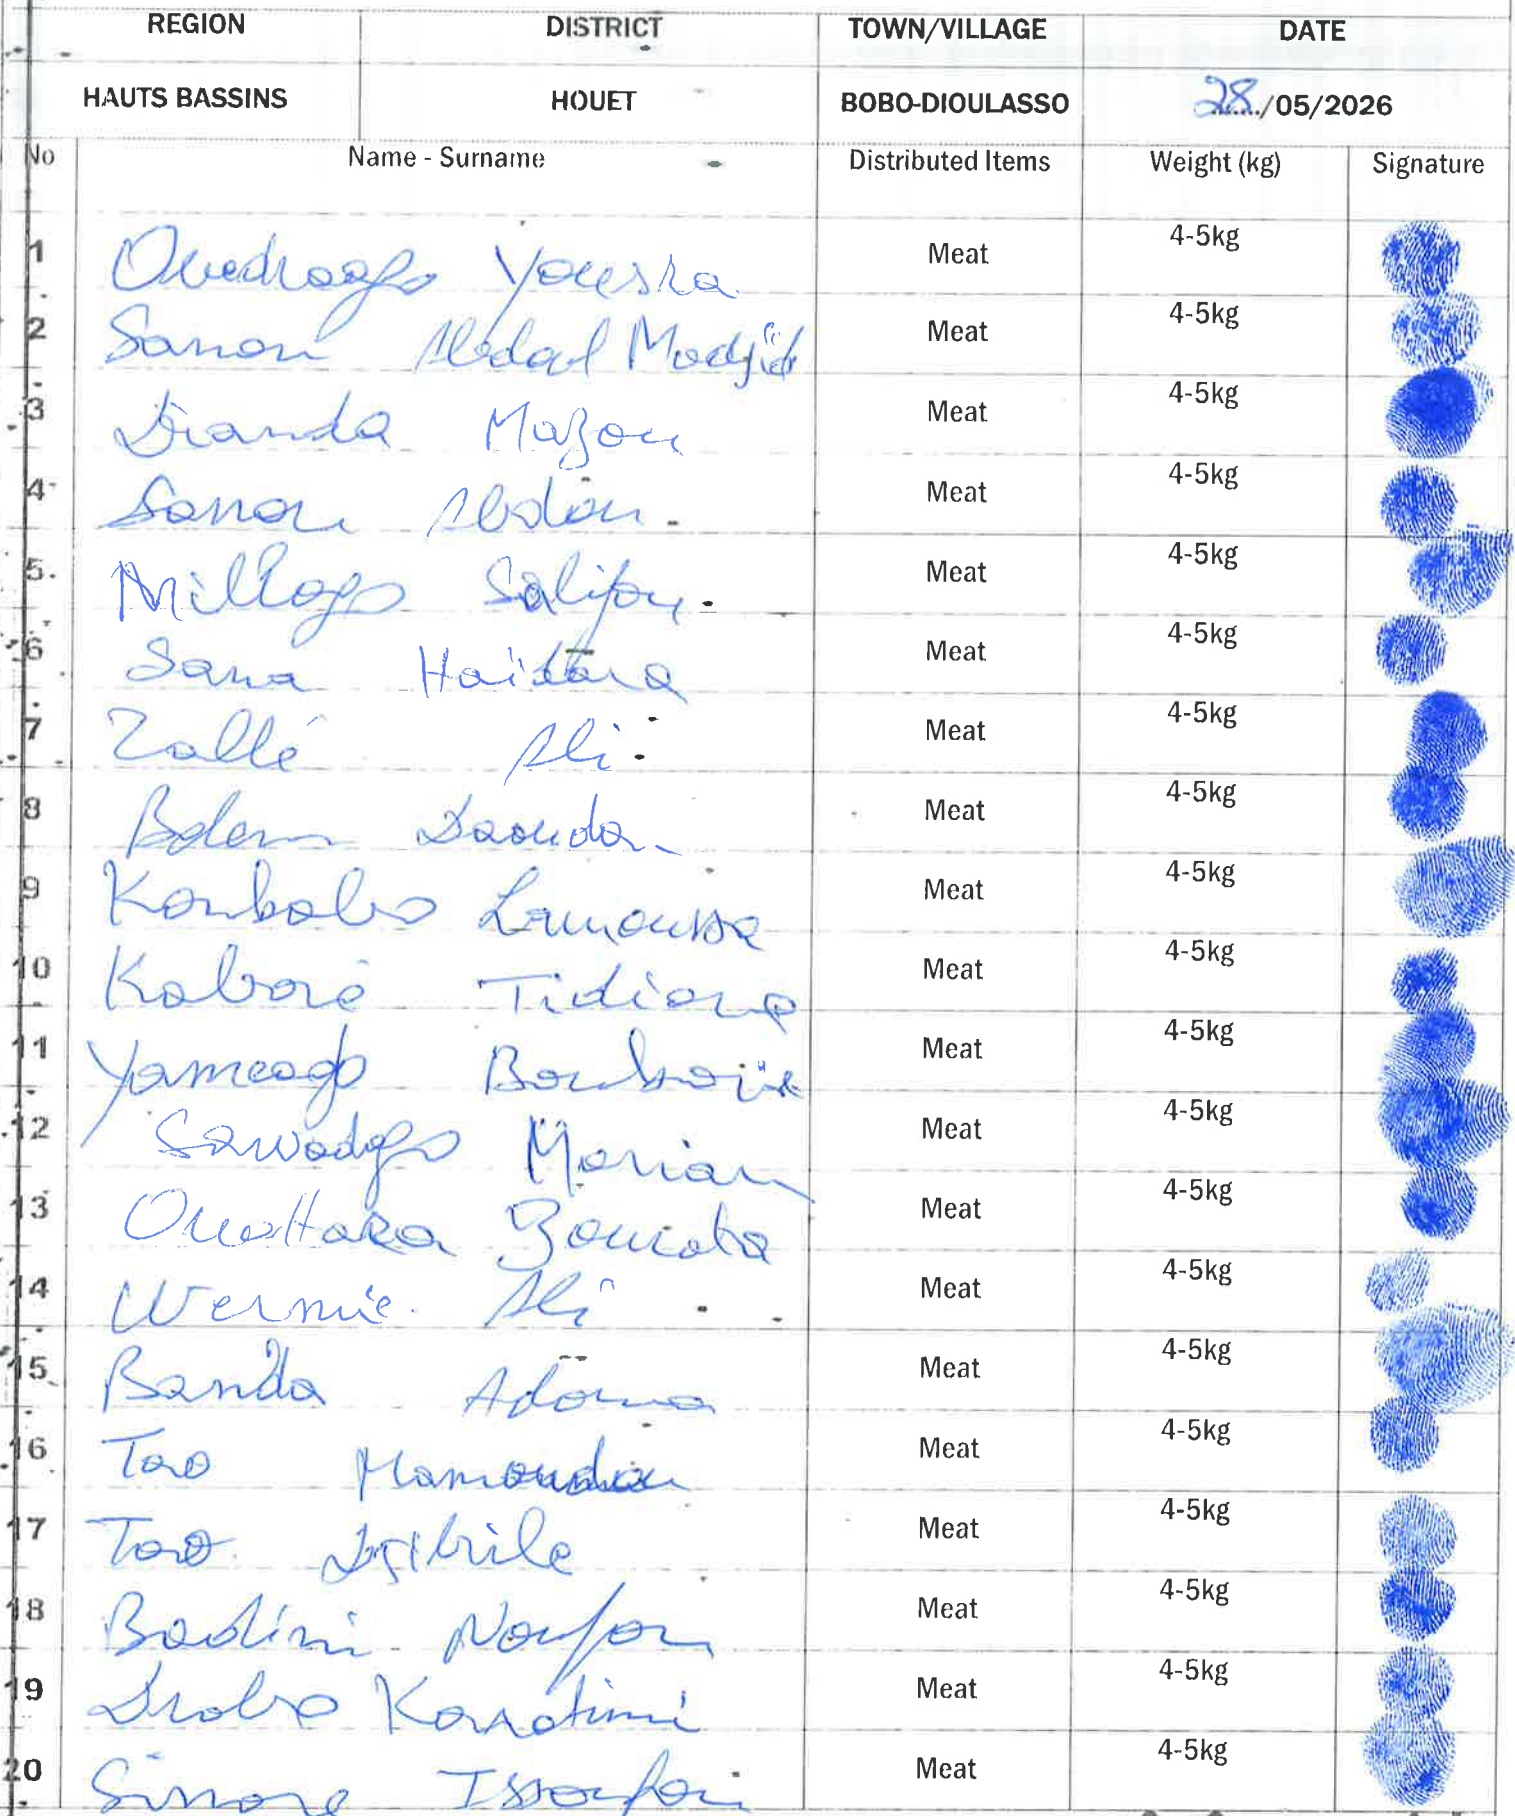 REGION DISTRICT TOWN/VILLAGE DATE
HAUTS BASSINS HOUET BOBO-DIOULASSO 28/05/2026
No Name - Surname Distributed Items Weight (kg) Signature
1 Ouedraogo Yousra Meat 4-5kg
2 Sanou Abdoul Modjid Meat 4-5kg
3 Dianda Mazou Meat 4-5kg
4 Sanou Abdou Meat 4-5kg
5. Millogo Salifou Meat 4-5kg
6 Sana Haïdara Meat 4-5kg
7 Zallé Ali Meat 4-5kg
8 Belem Daouda Meat 4-5kg
9 Lamoussa Meat 4-5kg
10 Kaboré Tidiane Meat 4-5kg
11 Yameogo Meat 4-5kg
12 Sawadogo Mariam Meat 4-5kg
13 Ouattara Meat 4-5kg
14 Wermie Ali Meat 4-5kg
15 Banda Adama Meat 4-5kg
16 Tao Mamoudou Meat 4-5kg
17 Tao Djibrile Meat 4-5kg
18 Badini Noufou Meat 4-5kg
19 Drabo Karatimi Meat 4-5kg
20 Sinare Issoufou Meat 4-5kg